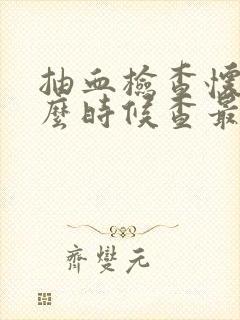 抽血檢查懷
麼時候查最
齊變元